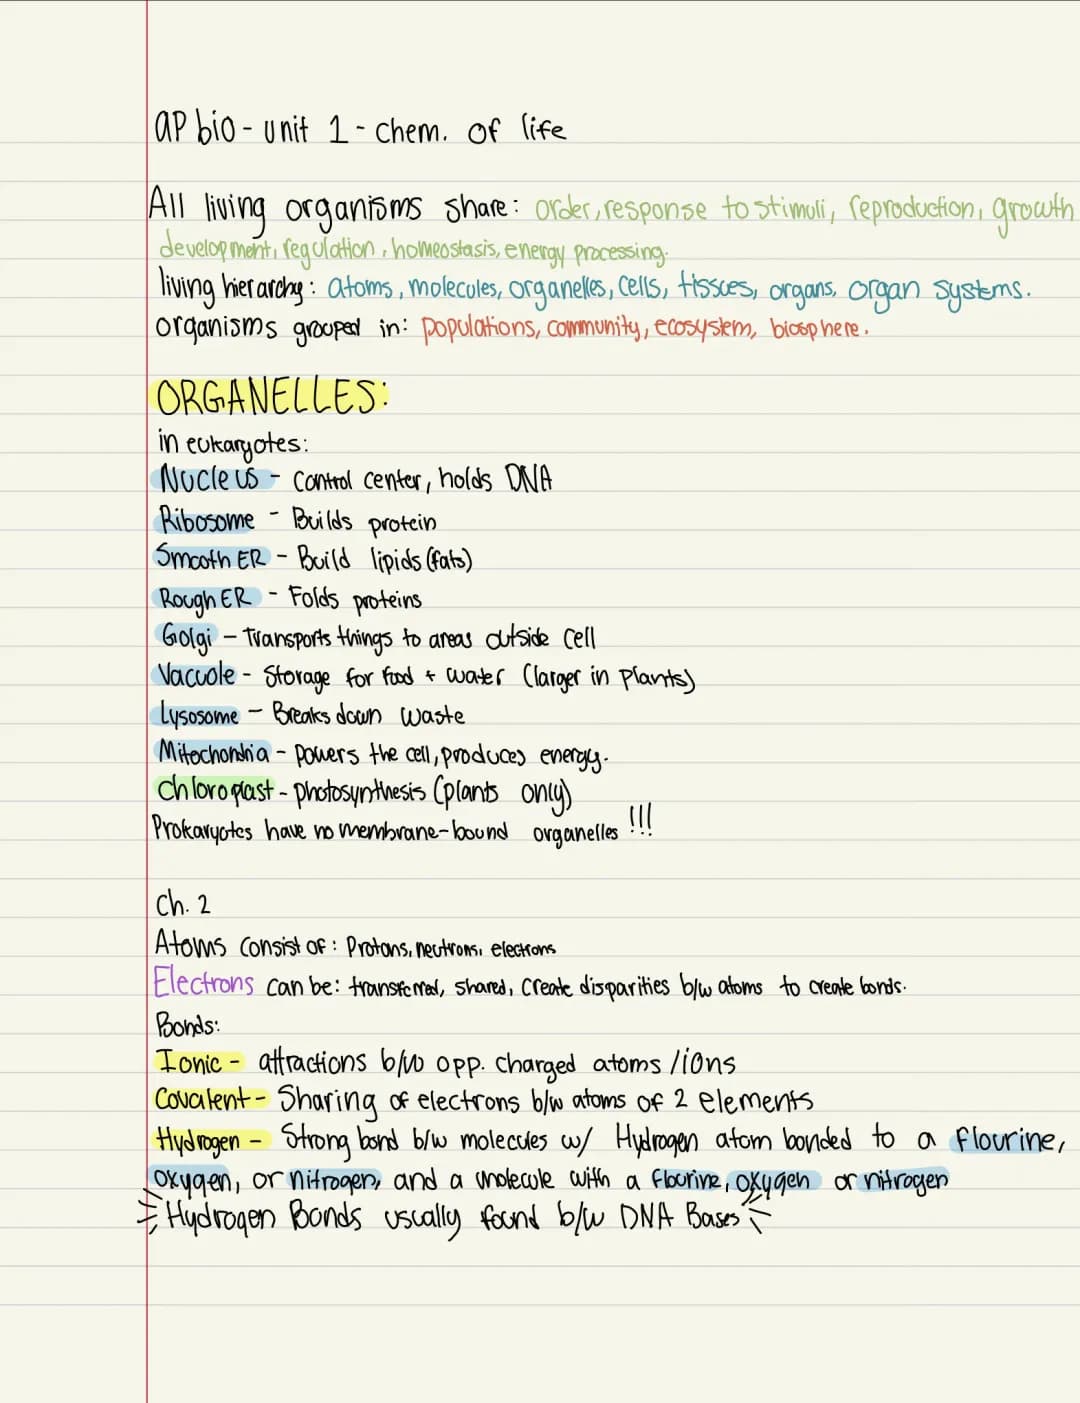 AP bio - unit 1 - chem. of life
All living organisms share: order, response to stimuli, reproduction, growth
development, regulation, homeostasis, energy processing.
living hierarchy: atoms, molecules, organelles, cells, tissues, organs, organ systems.
organisms grouped in: populations, community, ecosystem, biosphere.
ORGANELLES:
in eukaryotes:
Nucleus - Control center, holds DNA
Ribosome - Builds protein
Smooth ER - Build lipids (fats)
Rough ER - Folds proteins
Golgi - Transports things to areas outside cell
Vacuole - Storage for food + water (larger in plants)
Lysosome - Breaks down waste
Mitochondria - powers the cell, produces energy.
Chloroplast - photosynthesis (plants only)
Prokaryotes have no membrane-bound organelles !!!
Ch. 2
Atoms consist of: Protons, neutrons, electrons
Electrons can be: transferred, shared, create disparities b/w atoms to create bonds.
Bonds:
Ionic - attractions b/w opp. charged atoms /ions
Covalent - Sharing of electrons b/w atoms of 2 elements
Hydrogen - Strong bond b/w molecules w/ Hydrogen atom bonded to a flourine,
oxygen, or nitrogen, and a molecule with a flourine, oxygen or nitrogen
Hydrogen Bonds usually found b/w DNA Bases